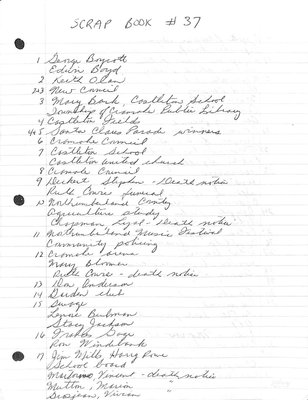 SCRAP BOOK # 37
1 George Boycott
Edwin Boyd
2 Keith Olan
2&3 New Council
3 Mary Bark, Castleton School
Township of Cramahe Public Library
4 Castleton Fields
4&5 Santa Claus Parade winners
6 Cramahe Council
7 Castleton School
Castleton United Church
8 Cramahe Council
9 Deckert Stephen - Death notice
Ruth funeral
10 Northumberland County
Agriculture study
Chapman, Loyal - Death notice
11 Northumberland Music Festival
Community policing
12 Cramahe arena
Mary Bloomer
Ruth - death notice
13 Don Anderson
14 Garden club
15 Sewage
Lennie Buchman
Stacy Jackson
16 Frances Gage
Ron Windebank
17 Jim Mills, Harry Rowe
School board
Vincent - death notice
Mutton, Marion "
Vivian "